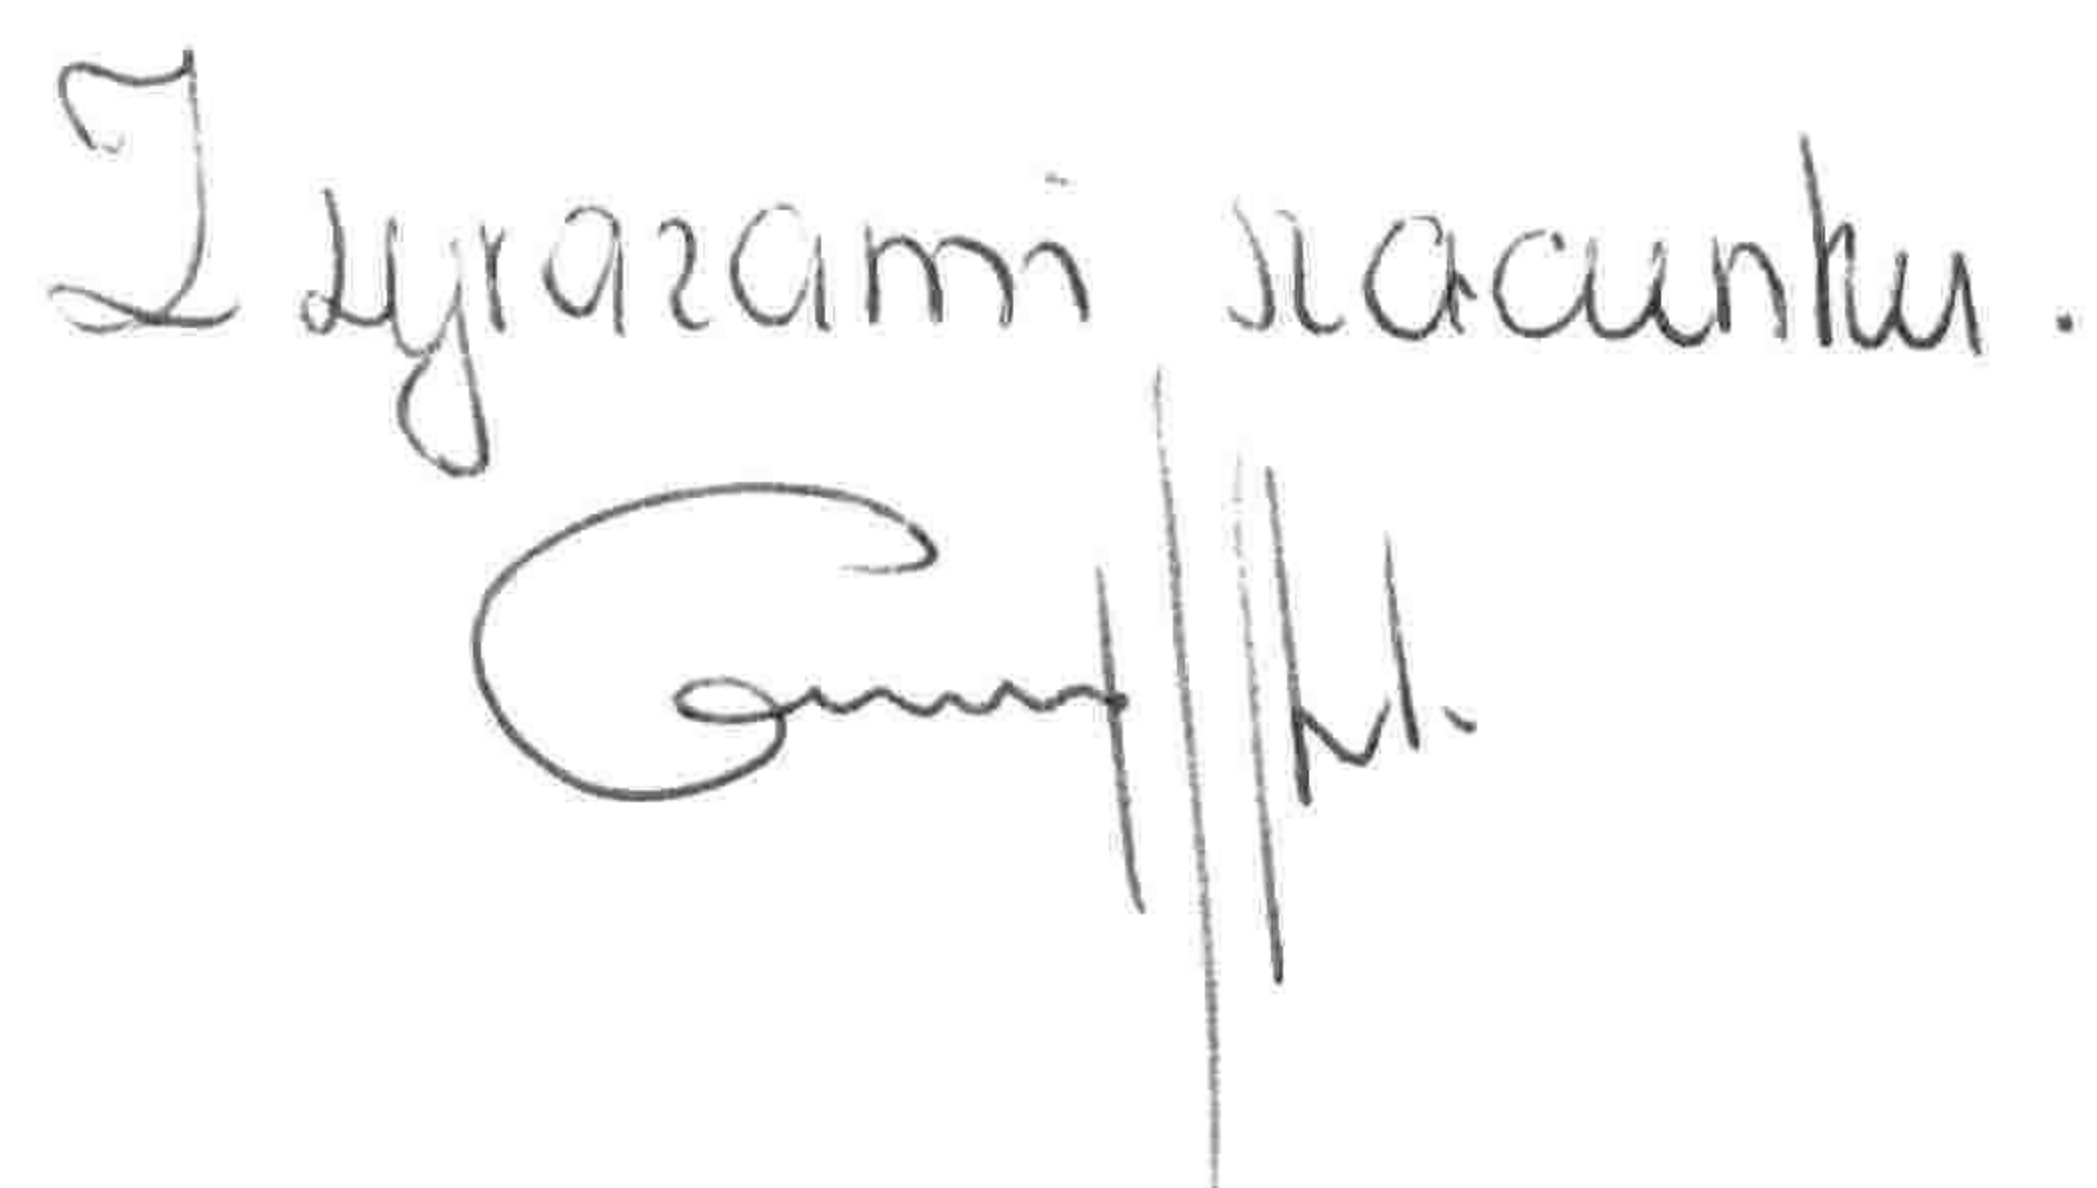 Z wyrazami szacunku.